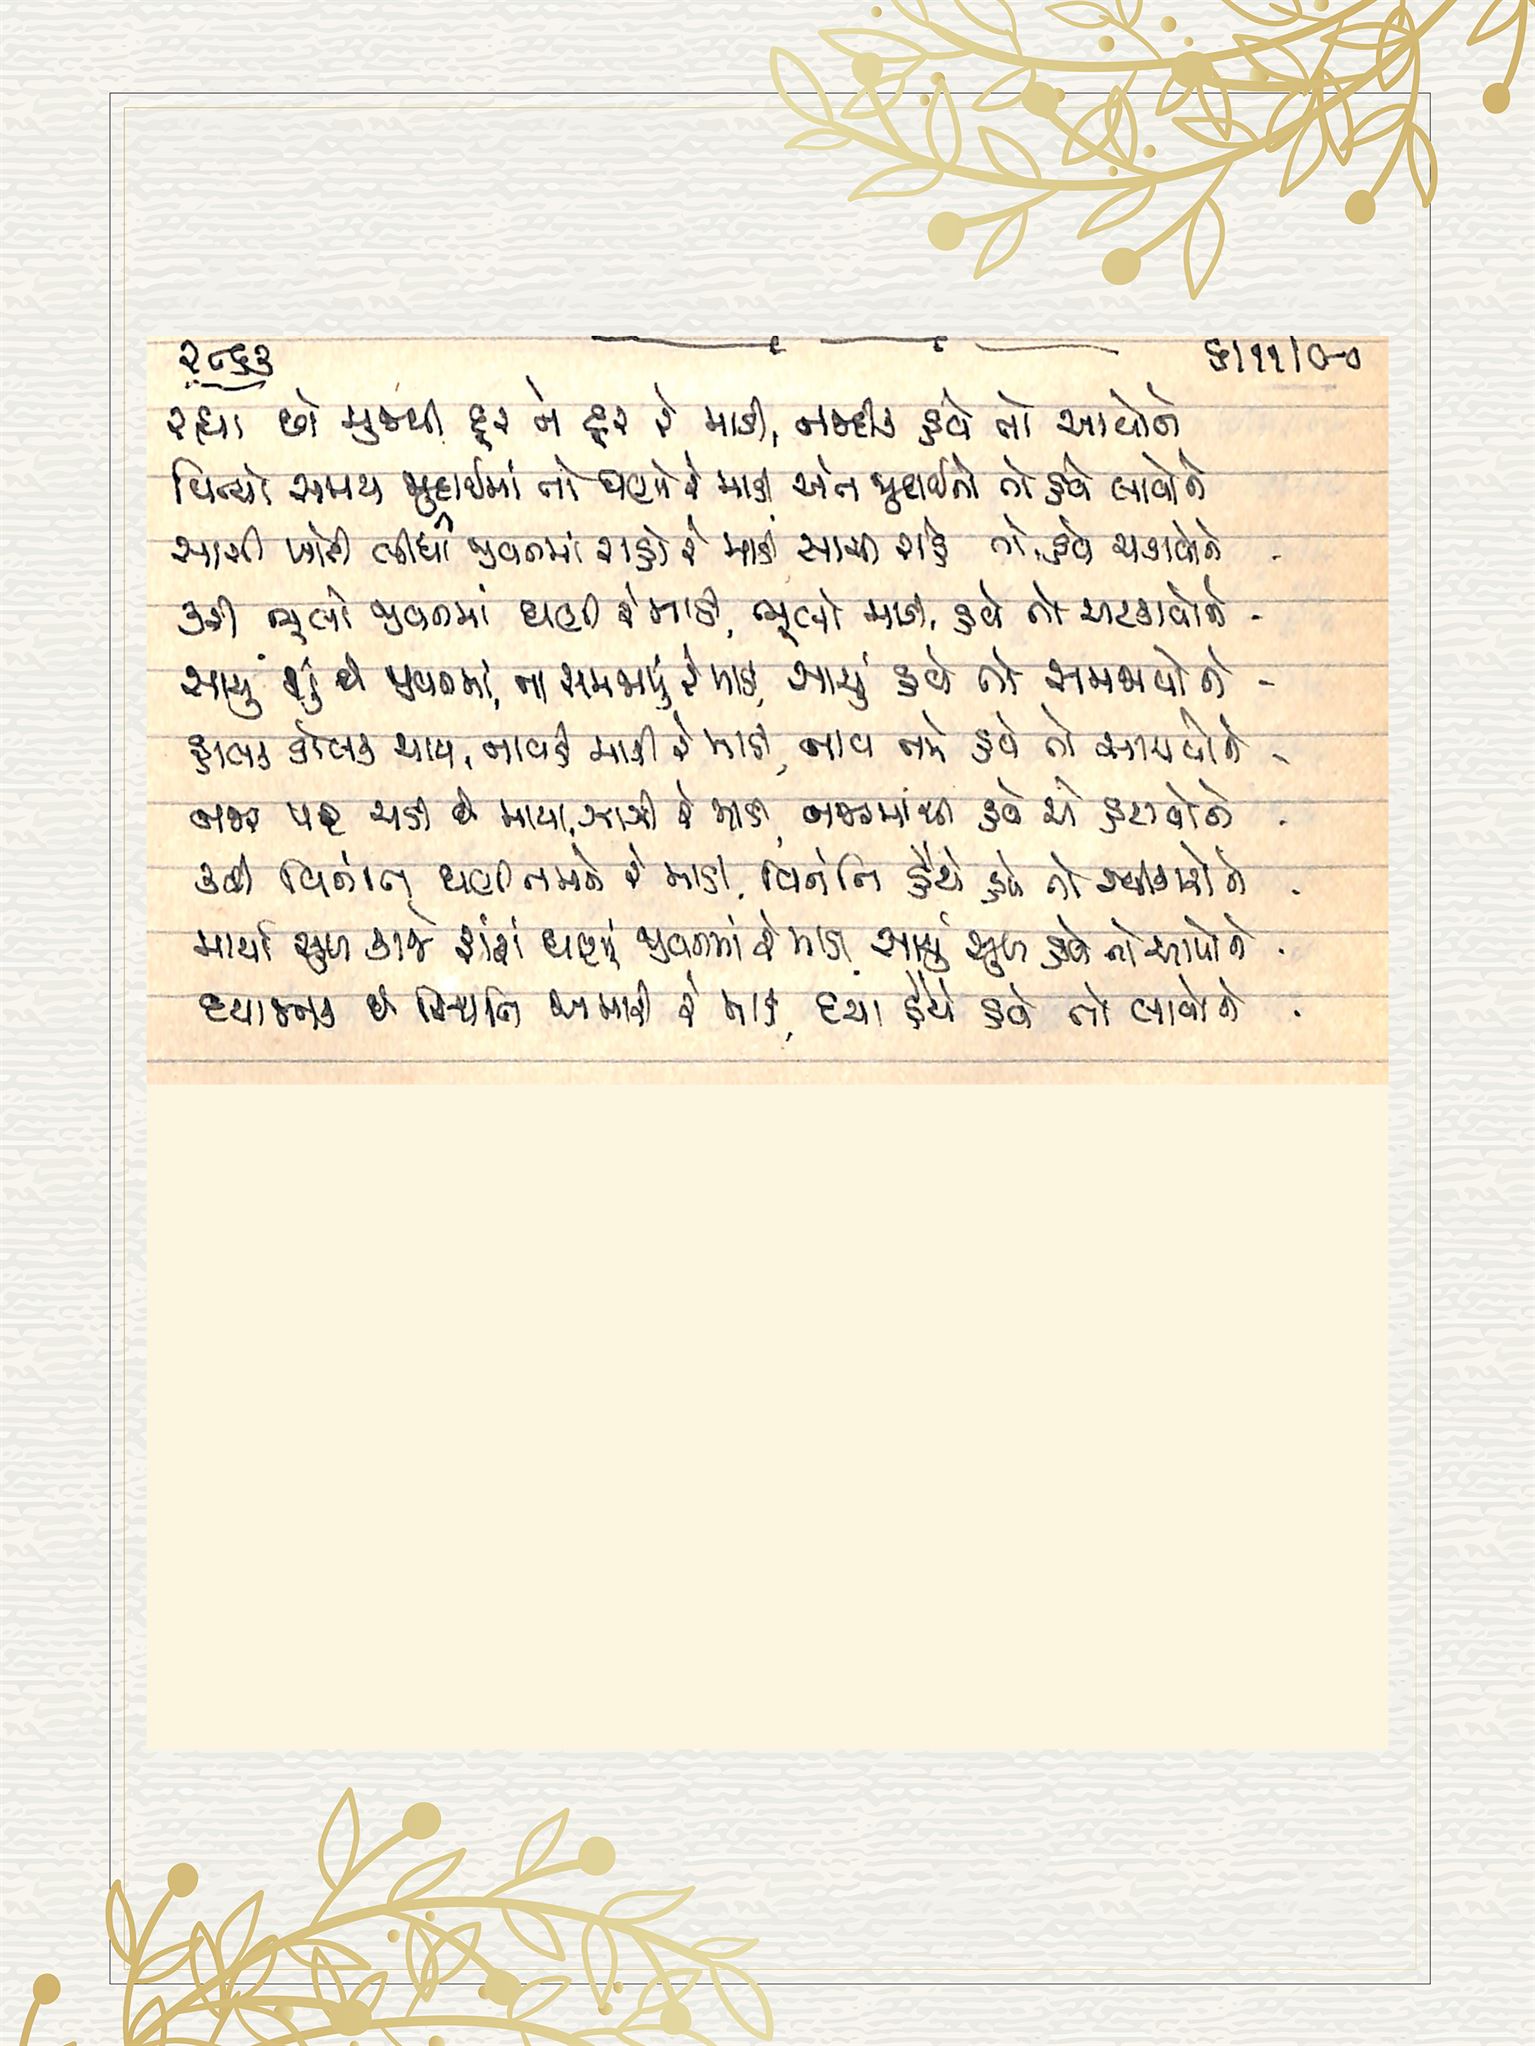 ૨૮૬૩
રહ્યા છો મુજથી દૂર ને દૂર રે માડી, નજદીક હવે તો આવોને
વિત્યો સમય જુદાઈમાં તો ઘણો રે માડી અંત જુદાઈનો તો હવે લાવોને
સાચી ખોટી લીધી જીવનમાં રાહો રે માડી સાચી રાહે તો હવે ચડાવોને
કરી ભૂલો જીવનમાં ઘણી રે માડી, ભૂલો માડી, હવે તો અટકાવોને
સાચું શું છે જીવનમાં, ના સમજાયું રે માડી, સાચું હવે તો સમજાવોને
હાલક ડોલક થાય, નાવડી મારી રે માડી, નાવ તમે હવે તો સ્થાપોને
નજર પર ચડી છે માયા, જાગી રે માડી, નજરમાંથી હવે એ હટાવોને
કરી વિનંતિ ઘણી તમને રે માડી, વિનંતિ હૈયે હવે તો સ્વીકારોને
માર્યા સુખ કાજે ફાંફાં ઘણાં જીવનમાં રે માડી, સાચું સુખ હવે તો આપોને
દયાજનક છે સ્થિતિ અમારી રે માડી, દયા હૈયે હવે તો લાવોને